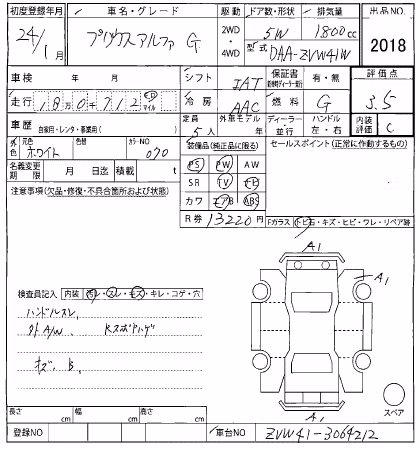 初度登録年月 車名・グレード 駆動 ドア数・形状 排気量 出品NO.
24/1月 プリウスアルファ G 2WD・4WD 5W 1800cc 2018
型式 DAA-ZVW41W
車検 年 月 シフト IAT 保証書 有・無 評価点
走行 18万0712 km マイル 冷房 AAC 燃料 G 3.5
車歴 自家用・レンタ・事業用( ) 定員 5人 外装モデル 年 ディーラー・並行 ハンドル 左・右 内装評価 C
外色 元色 ホワイト 色替 カラーNO 070 装備品(純正品に限る) セールスポイント(正常に作動するもの)
名義変更期限 月 日迄 積載 t PS PW AW
注意事項(欠品・修復・不具合箇所および状態) SR TV ナビ
カワ エアB ABS
R券 13220円 Fガラス トビ石・キズ・ヒビ・ワレ・リペア跡
A1
A1
検査員記入 内装 汚レ・スレ・キズ・キレ・コゲ・穴
ハンドルスレ
外A/W Rスポアハゲ
キズ・B
A1
スペア
長さ cm 幅 cm 高さ cm
登録NO 車台NO ZVW41-3064212